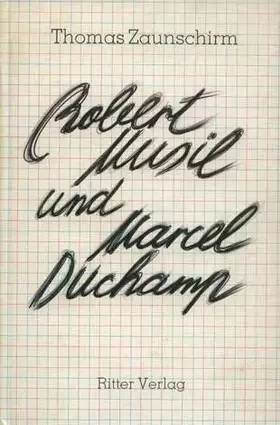 Thomas Zaunschirm
Robert
Musil
und
Marcel
Duchamp
Ritter Verlag